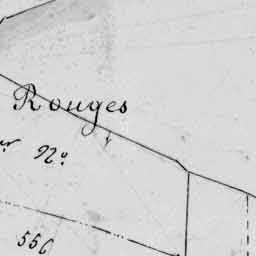 Rouges
92°
556